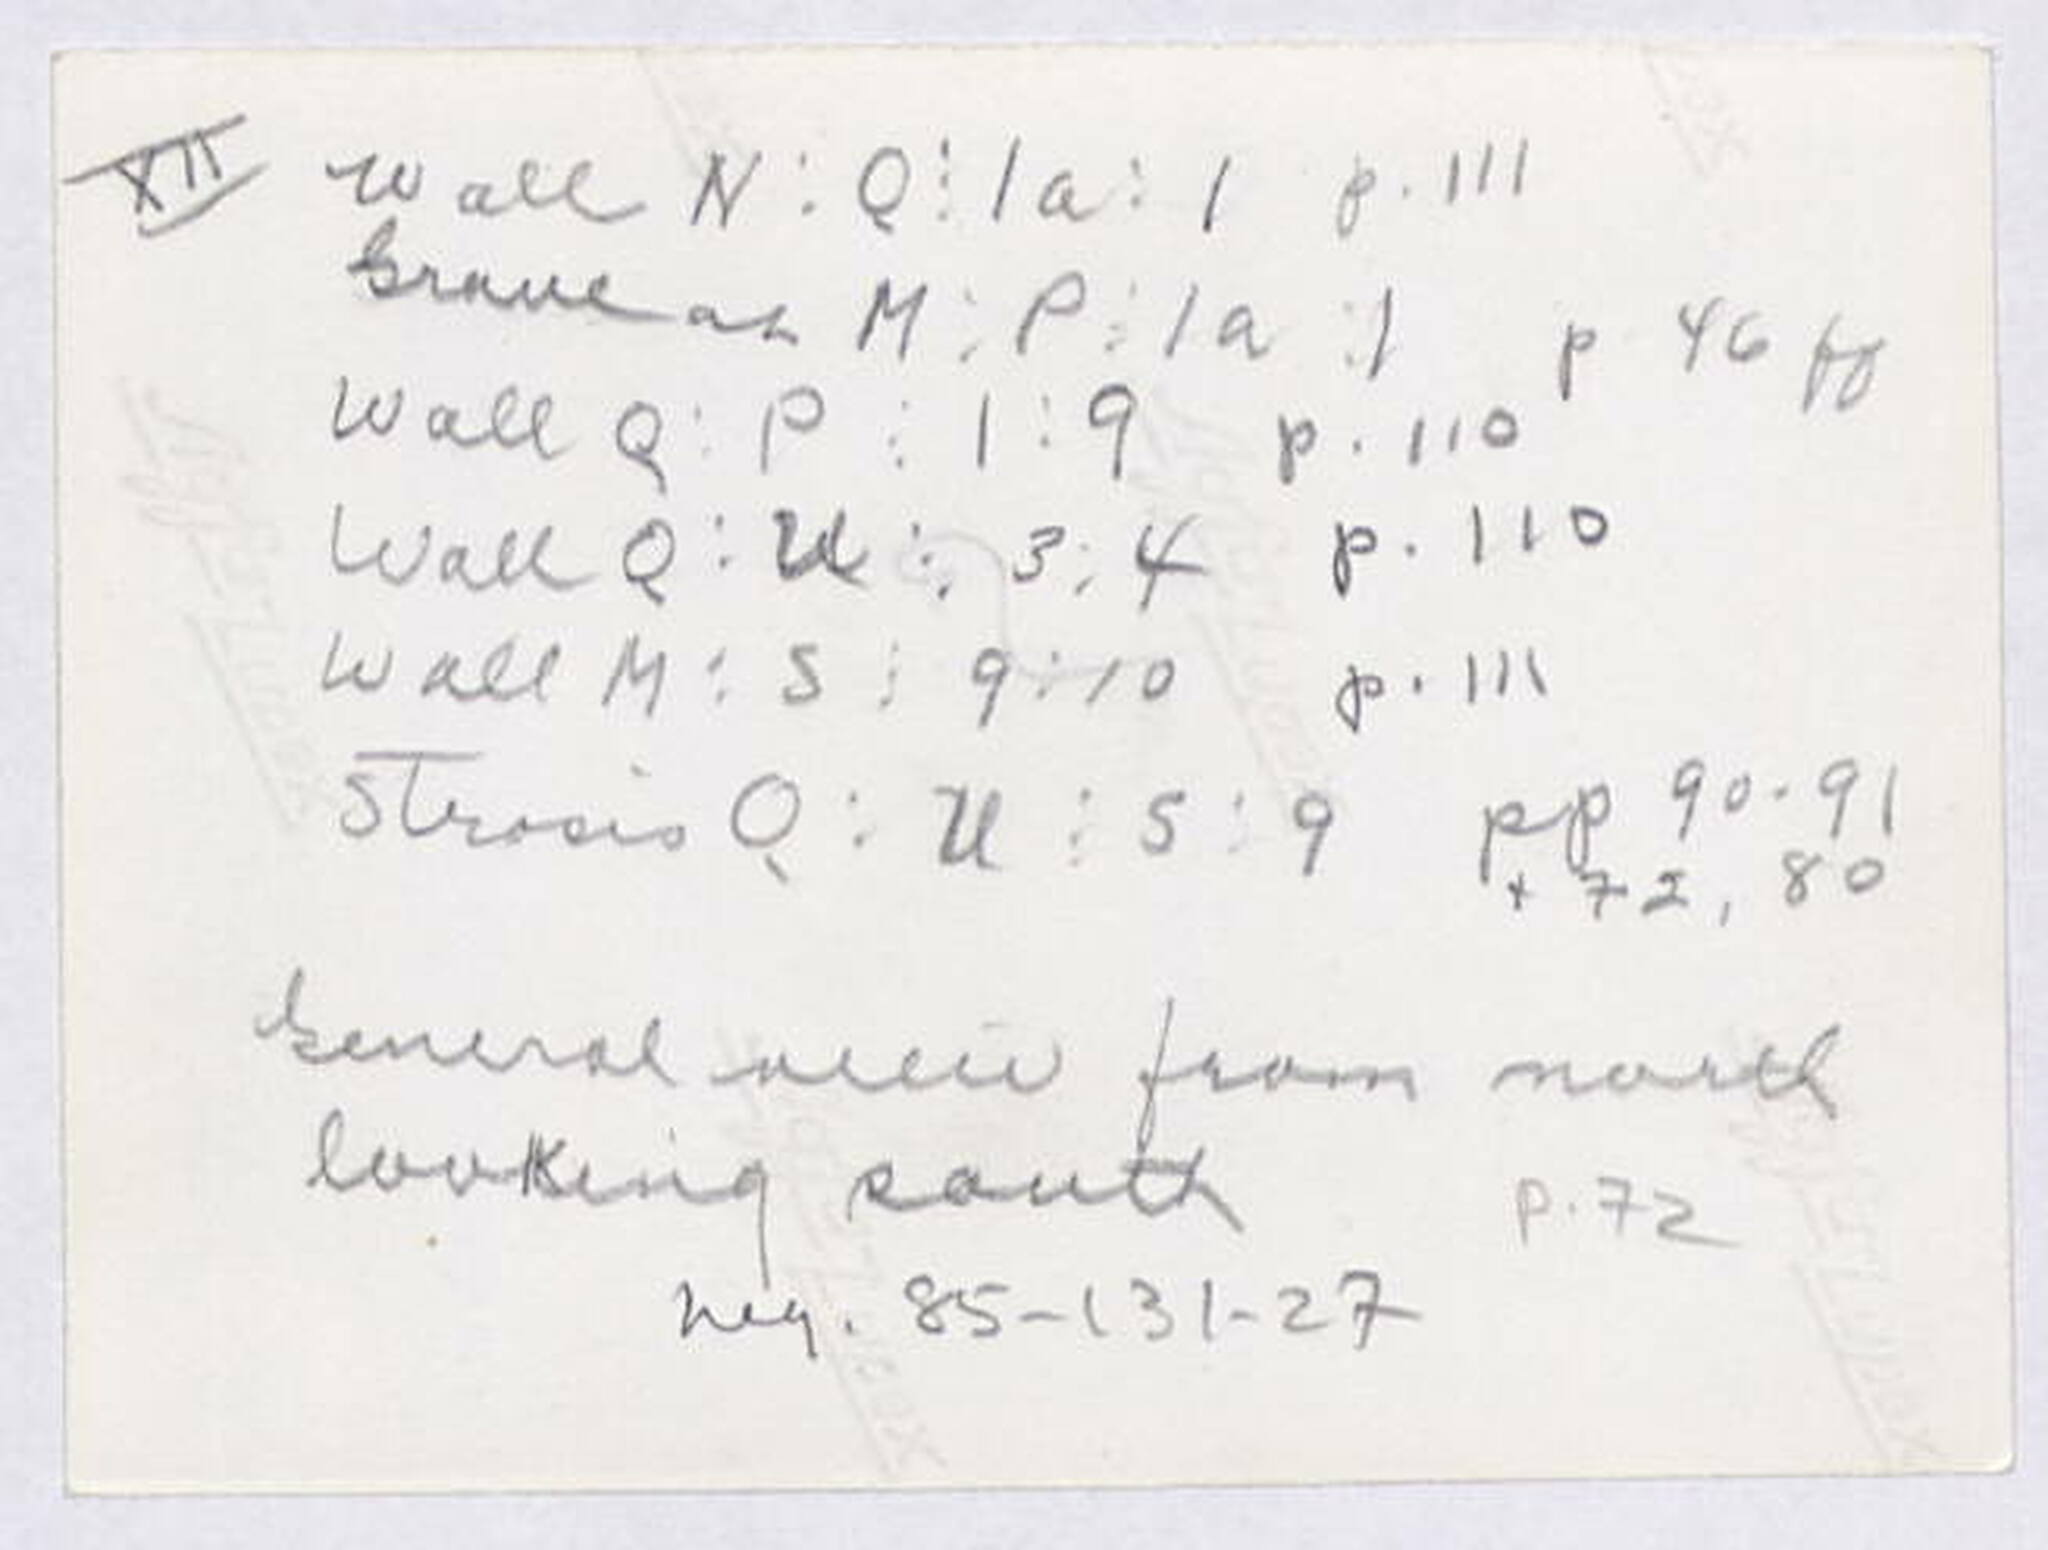 XII Wall N : Q : 1a : 1 p. 111
Grave at M : P : 1a : 1 p 46 ff
Wall Q : P : 1 : 9 p. 110
Wall Q : U : 3 : 4 p. 110
Wall M : S : 9 : 10 p. 111
Strosis Q : U : 5 : 9 pp 90-91
+ 72, 80
General view from north
looking south p. 72
neg. 85-131-27